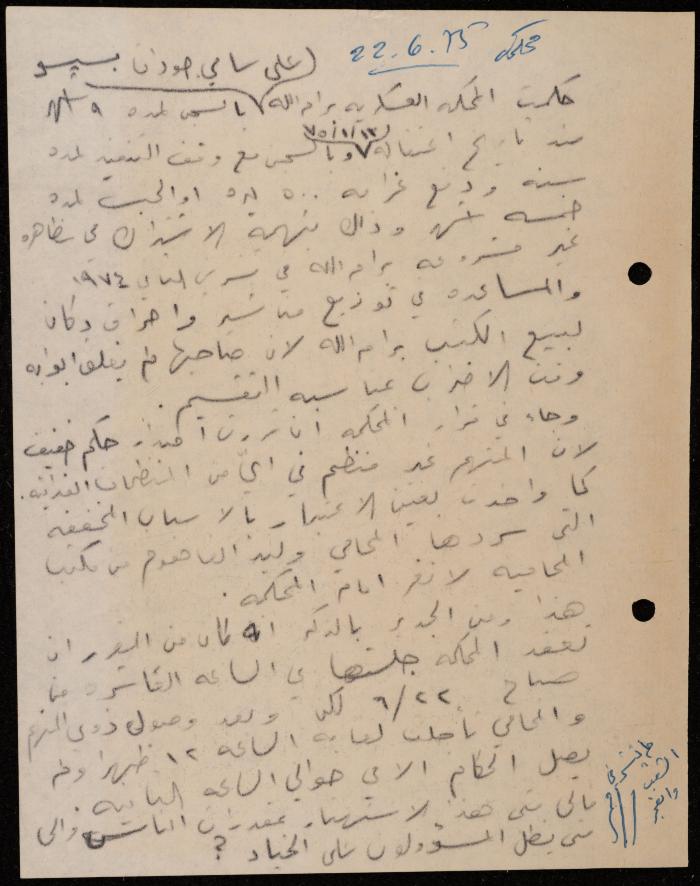 محاكم 22.6.75
(علي سامي جودات بسيسو
حكمت المحكمه العسكريه برام الله بالسجن لمده ٩ اشهر
منذ تاريخ اعتقاله ٧٥/١/١٣ وبالسجن مع وقف التنفيذ لمده
سنه ودفع غرامه ٥٠٠ ليره او الحبس لمده
خمسه اشهر وذلك بتهمة الاشتراك في مظاهره
غير مشروعه برام الله في تشرين الثاني ١٩٧٤
والمساعده في توزيع مناشير واحراق دكان
لبيع الكتب برام الله لان صاحبها لم يغلق ابوابه
وقت الاضراب بمناسبه التقسيم.
وجاء في قرار المحكمه انا نررت اصدار حكم خفيف
لان المتهم غير منظم في اي من المنظمات الفدائيه.
كما واخذت بعين الاعتبار بالاسباب المخففه
التي سردها المحامي وليد الفاهوم من مكتب
المحاميه لانغر امام المحكمه.
هذا ومن الجدير بالذكر انه كان من المقرر ان
تعقد المحكمه جلستها في الساعه العاشره من
صباح ٦/٢٢ لكن وبعد وصول ذوي المتهم
والمحامي تأجلت لغايه الساعه ١٢ ظهرا ولم
يصل الحكام الا في حوالي الساعه الثانيه.
فالى متى هذا الاستهتار بمقدرات الناس والى
متى يظل المسؤولون على الحياد ؟